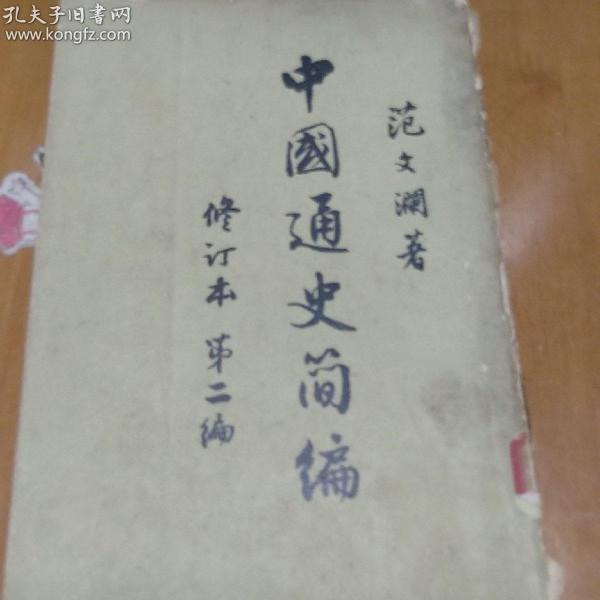 孔夫子旧书网
www.kongfz.com
范文澜著
中國通史简编
修订本 第二编